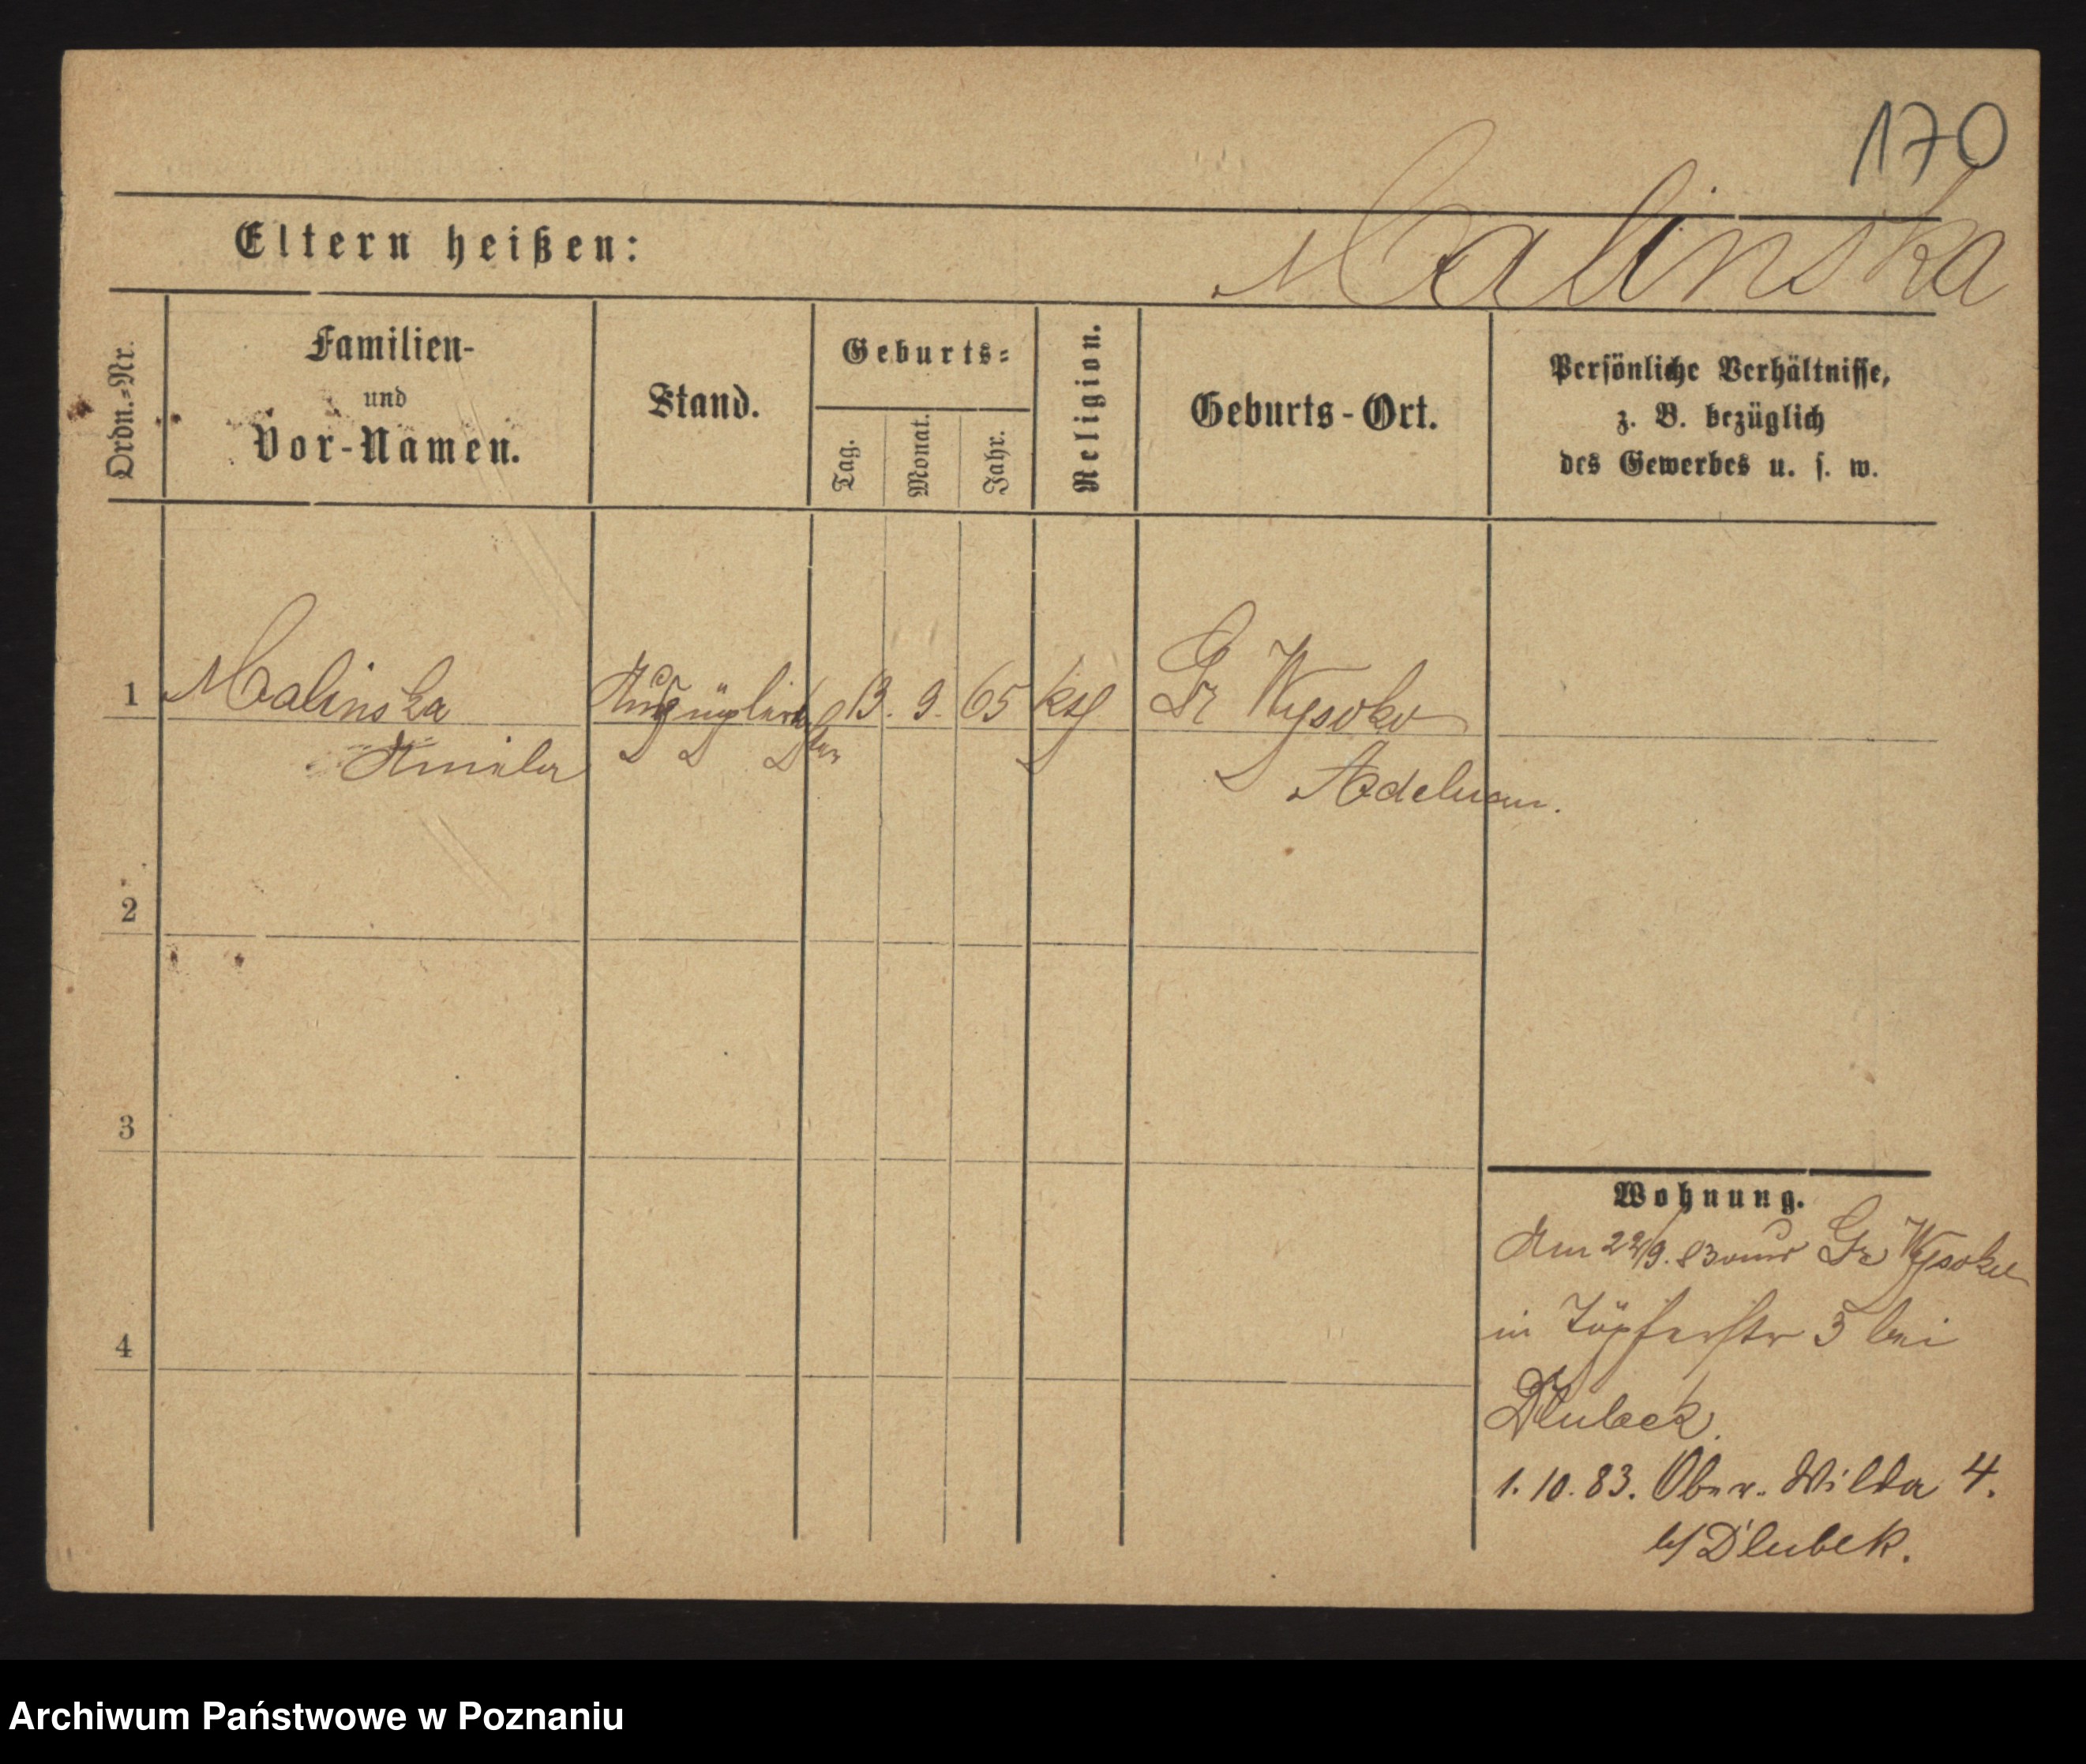 170
Malinska
Eltern heißen:
Ordn.-Nr.
Familien-
und
Vor-Namen.
Stand.
Geburts-
Tag.
Monat.
Jahr.
Religion.
Geburts-Ort.
Persönliche Verhältnisse,
z. B. bezüglich
des Gewerbes u. s. w.
1
Malinska 13. 9. 65 kth Gr Wysoko
Amalia
Adelnau.
2
3
4
Wohnung.
Am 22/9. 83 von Gr Wysoko
in Töpferstr 3 bei
Dlubeck.
1. 10. 83. Ober-Wilda 4.
b/ Dlubek.
Archiwum Państwowe w Poznaniu